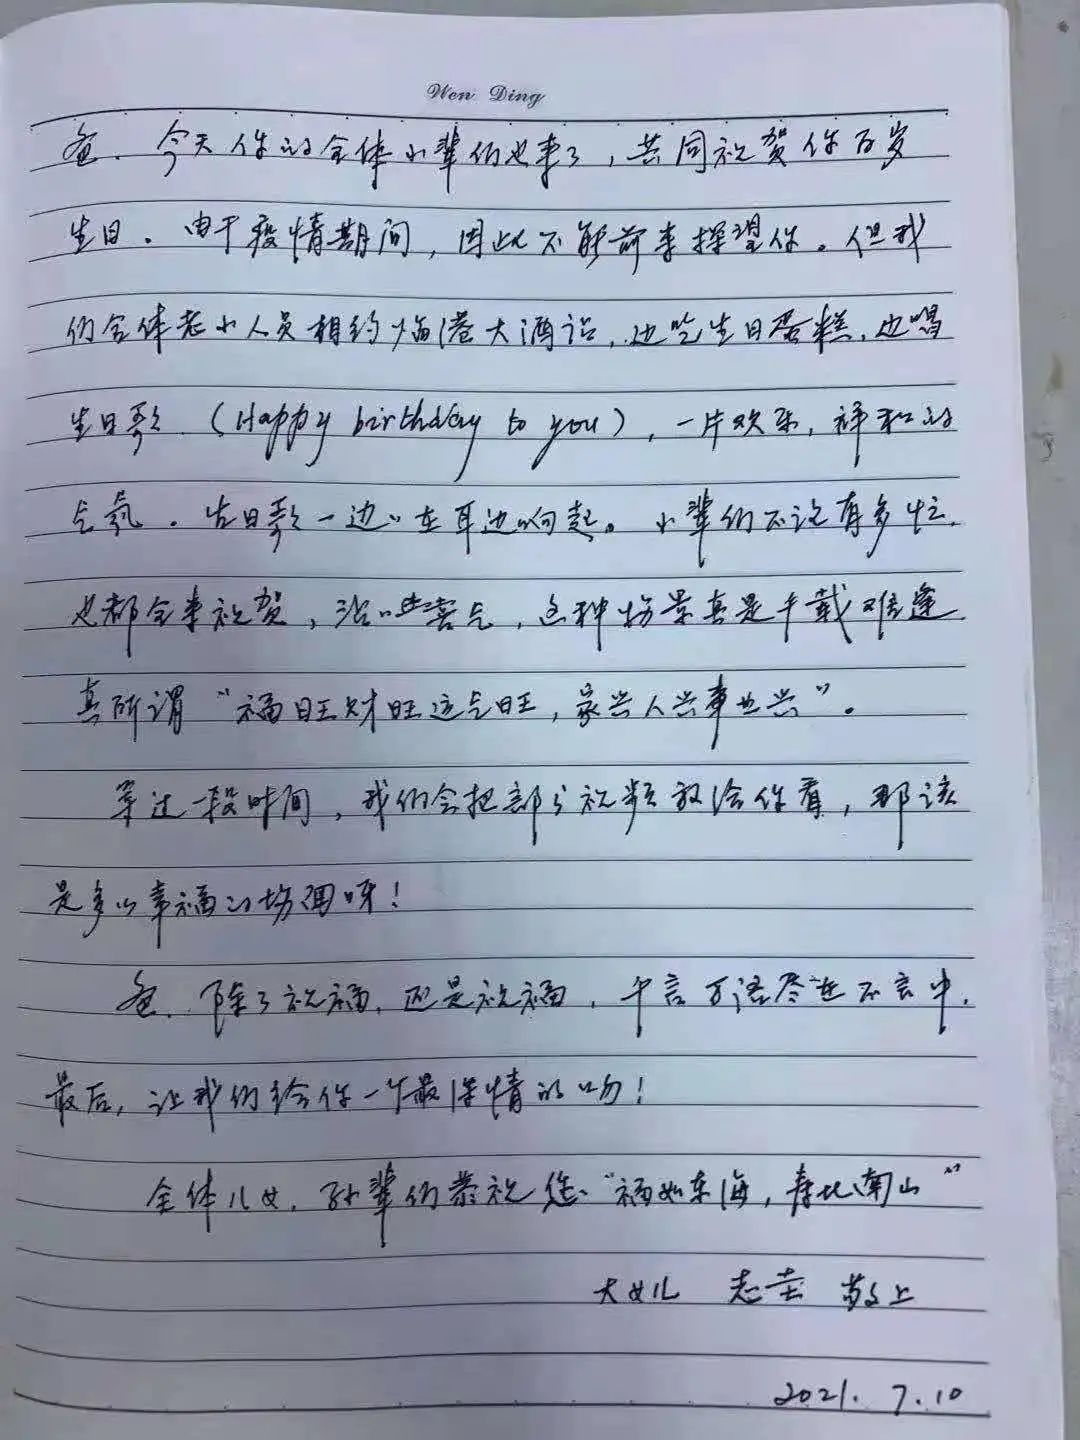 Wen Ding
爸．今天你的全体小辈们也来了，共同祝贺你百岁
生日．由于疫情期间，因此不能前来探望你。但我
们全体老小人员相约临港大酒店，边吃生日蛋糕，边唱
生日歌（Happy birthday to you），一片欢乐，祥和的
气氛．生日歌一边边在耳边响起。小辈们不论有多忙．
也都全来祝贺，沾沾喜气，这种场景真是千载难逢．
真所谓“福旺财旺运气旺，家兴人兴事业兴”．
等过一段时间，我们会把部分视频放给你看，那该
是多么幸福的场面呀！
爸．除了祝福，还是祝福，千言万语尽在不言中．
最后，让我们给你一个最深情的吻！
全体儿女，孙辈们恭祝您“福如东海，寿比南山”
大女儿 志芸 敬上
2021．7．10